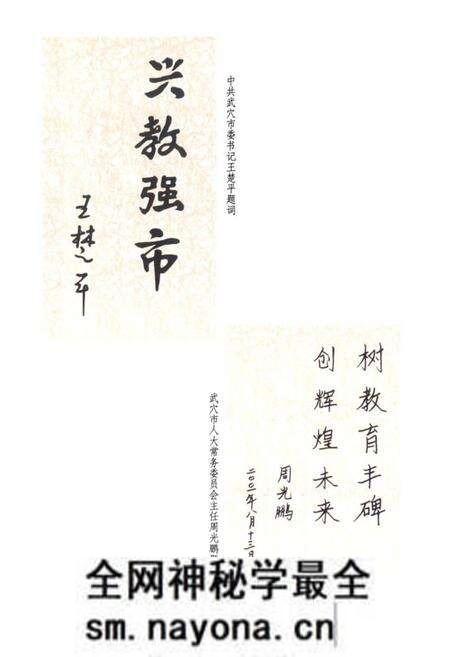 兴教强市
王楚平
中共武穴市委书记王楚平题词
树教育丰碑
创辉煌未来
周光鹏
二〇〇二年八月十三日
武穴市人大常务委员会主任周光鹏
全网神秘学最全
sm.nayona.cn